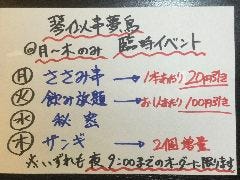 琴似串鳥
@月〜木のみ 臨時イベント
月 ささみ串 → 1本あたり 20円引き
火 飲み放題 → お1人さま 100円引き
水 秘密
木 ザンギ → 2個増量
※いずれも夜9:00までのオーダーに限ります